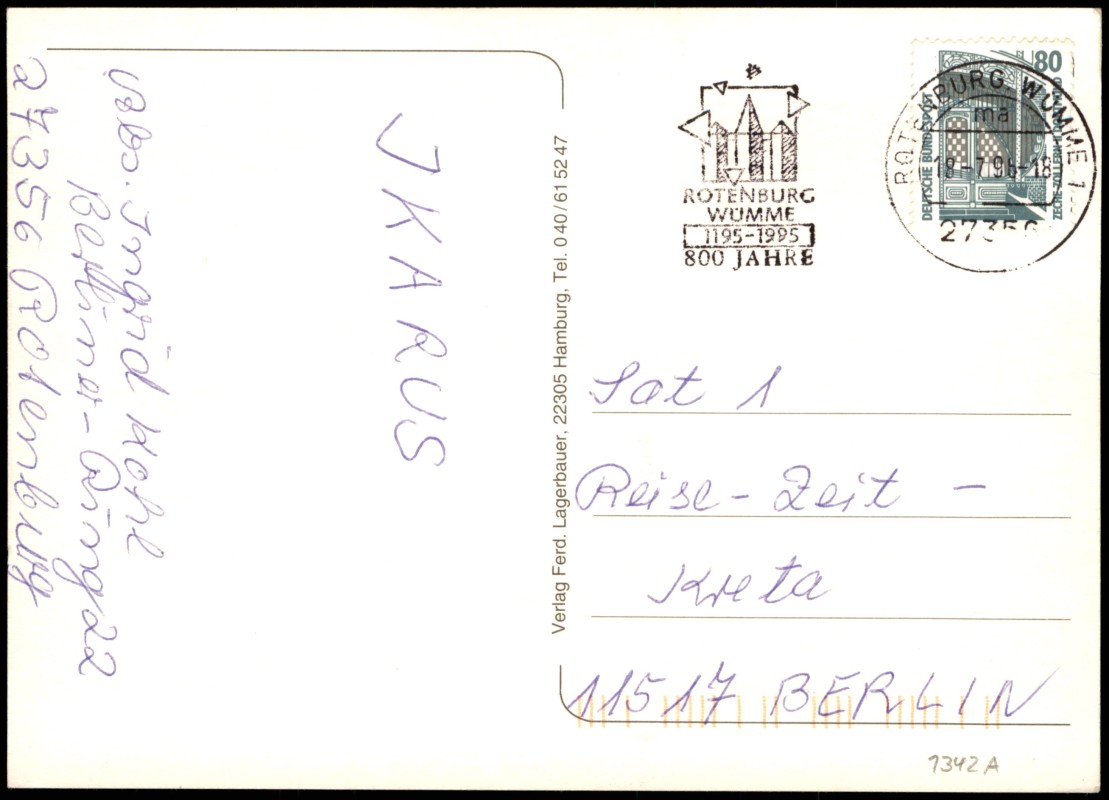 Abs. Ingrid Kohl
Berliner-Ring 22
27356 Rotenburg
IKARUS
Verlag Ferd. Lagerbauer, 22305 Hamburg, Tel. 040/61 52 47
ROTENBURG
WÜMME
1195-1995
800 JAHRE
80
DEUTSCHE BUNDESPOST
ROTENBURG, WÜMME 1
ma
18-7.96-18
27356
Sat 1
Reise-Zeit -
Kreta
11517 BERLIN
1342 A